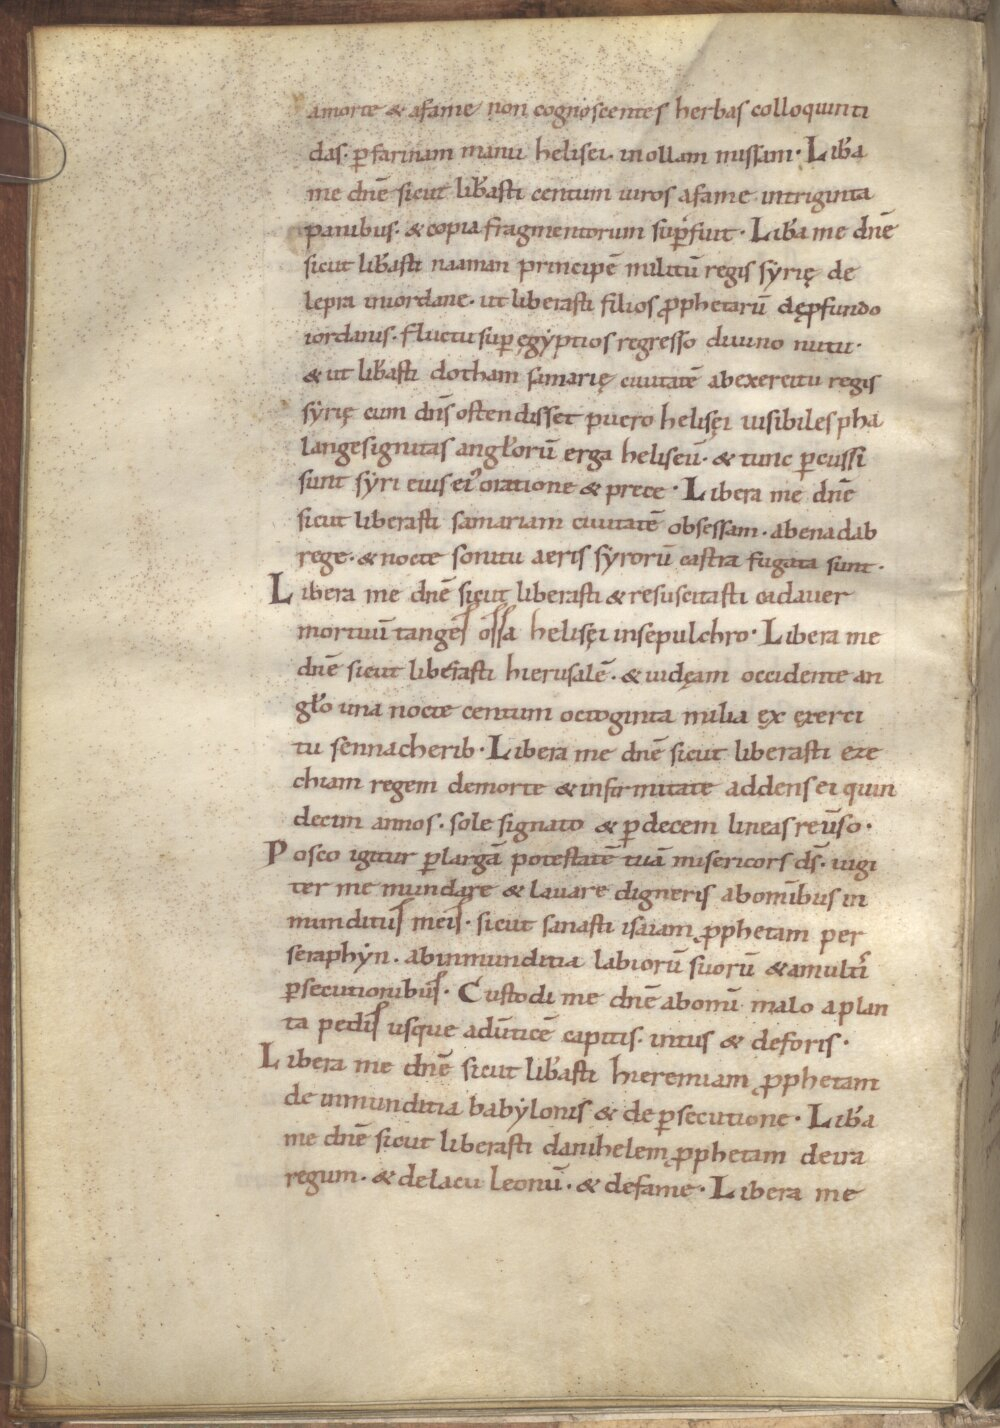 amorte & afame non cognoscentes herbas colloquinti
das· ꝑfarinam manu helisei· inollam missam· Lib̄a
me dn̄e sicut lib̄asti centum uiros afame intriginta
panibus· & copia fragmentorum suꝑfuit· Lib̄a me dn̄e
sicut lib̄asti naaman principē militū regis syrię de
lepra iniordane· ut liberasti filios ꝓphetarū dęꝓfundo
iordanis· fluctu suꝑ ęgyptios regresso diuino nutu·
& ut lib̄asti dotham samarię ciuitatē abexercitu regis
syrię cum dn̄s ostendisset puero helisęi uisibiles pha
langesignitas angl̄orū erga heliseū· & tunc ꝑcussi
sunt syri eius ei᾽ oratione & prece· Libera me dn̄e
sicut liberasti samariam ciuitatē obsessam· abenadab
rege· & nocte sonitu aeris syrorū castra fugata sunt·
Libera me dn̄e sicut liberasti & resuscitasti cadauer
mortuū tangēs ossa helisęi insepulchro· Libera me
dn̄e sicut liberasti hierusalē· & iudęam occidente an
gl̄o una nocte centum octoginta milia ęx ęxerci
tu sennacherib· Libera me dn̄e sicut liberasti eze
chiam regem demorte & infirmitate addens ei quin
decim annos· sole signato & ꝑ decem lineas reūso·
Posco igitur ꝑlargā potestatē tuā misericors ds̄· uigi
ter me mundare & lauare digneris abomībus in
munditiis meis· sicut sanasti isaiam ꝓphetam per
seraphyn· abinmunditia labiorū suorū & amultı᾽
ꝑsecutionibus· Custodi me dn̄e abomı̄ malo aplan
ta pedis usque adūticē capitis· intus & deforis·
Libera me dn̄e sicut lib̄asti hieremiam ꝓphetam
de inmunditia babylonis & de ꝑsecutione· Lib̄a
me dn̄e sicut liberasti danihelem ꝓphetam deira
regum· & delacu leonū· & defame· Libera me